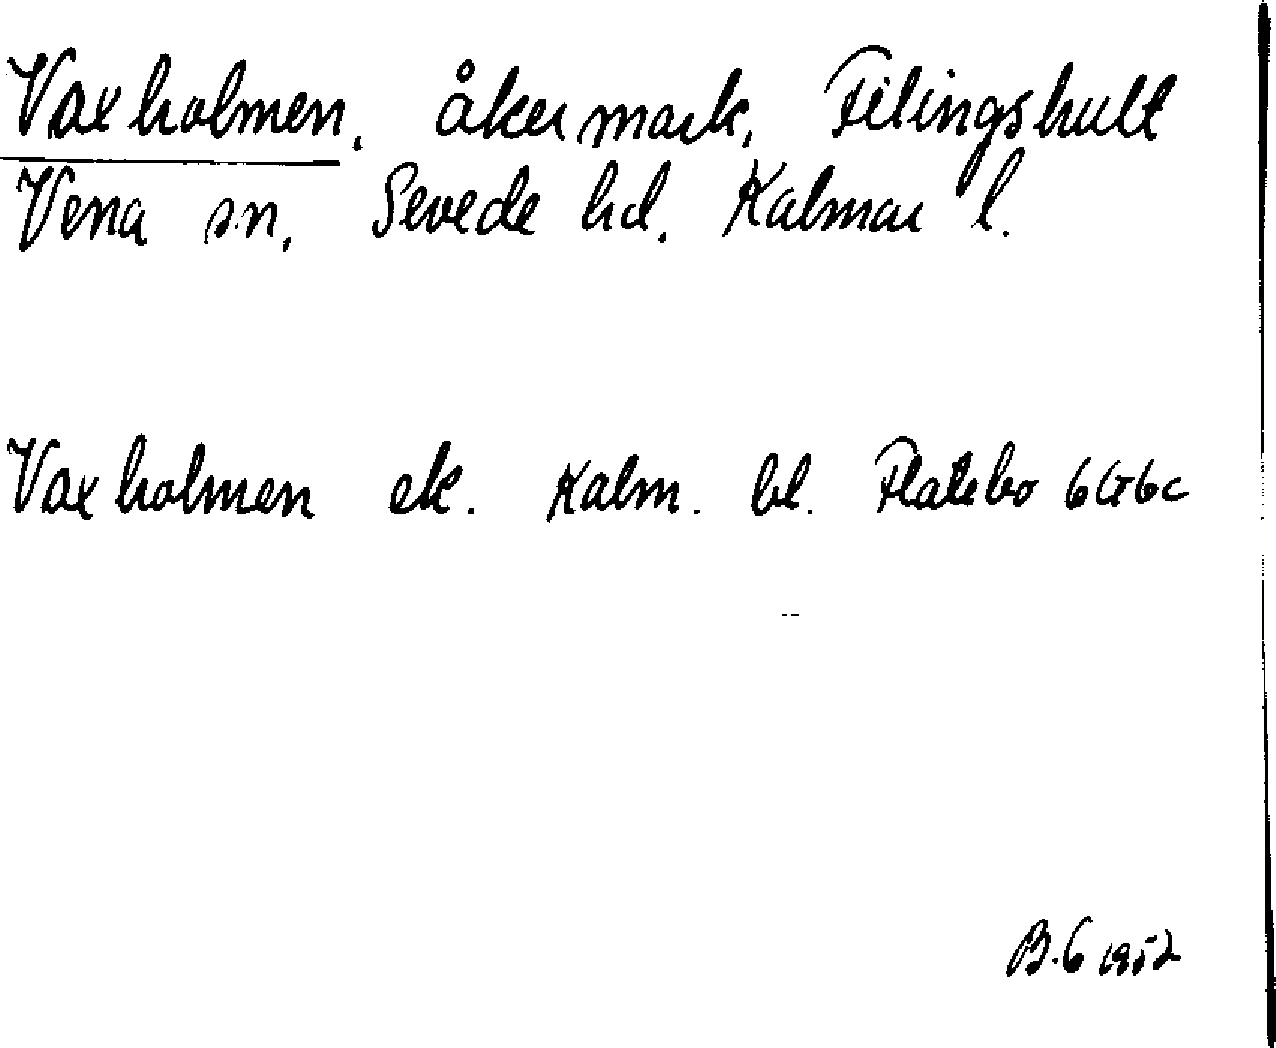 Vaxholmen, åkermark, Filingshult
Vena sn, Sevede hd. Kalmar l.
Vaxholmen ek. Kalm. bl. Flatebo 6G6c
B.G 1952